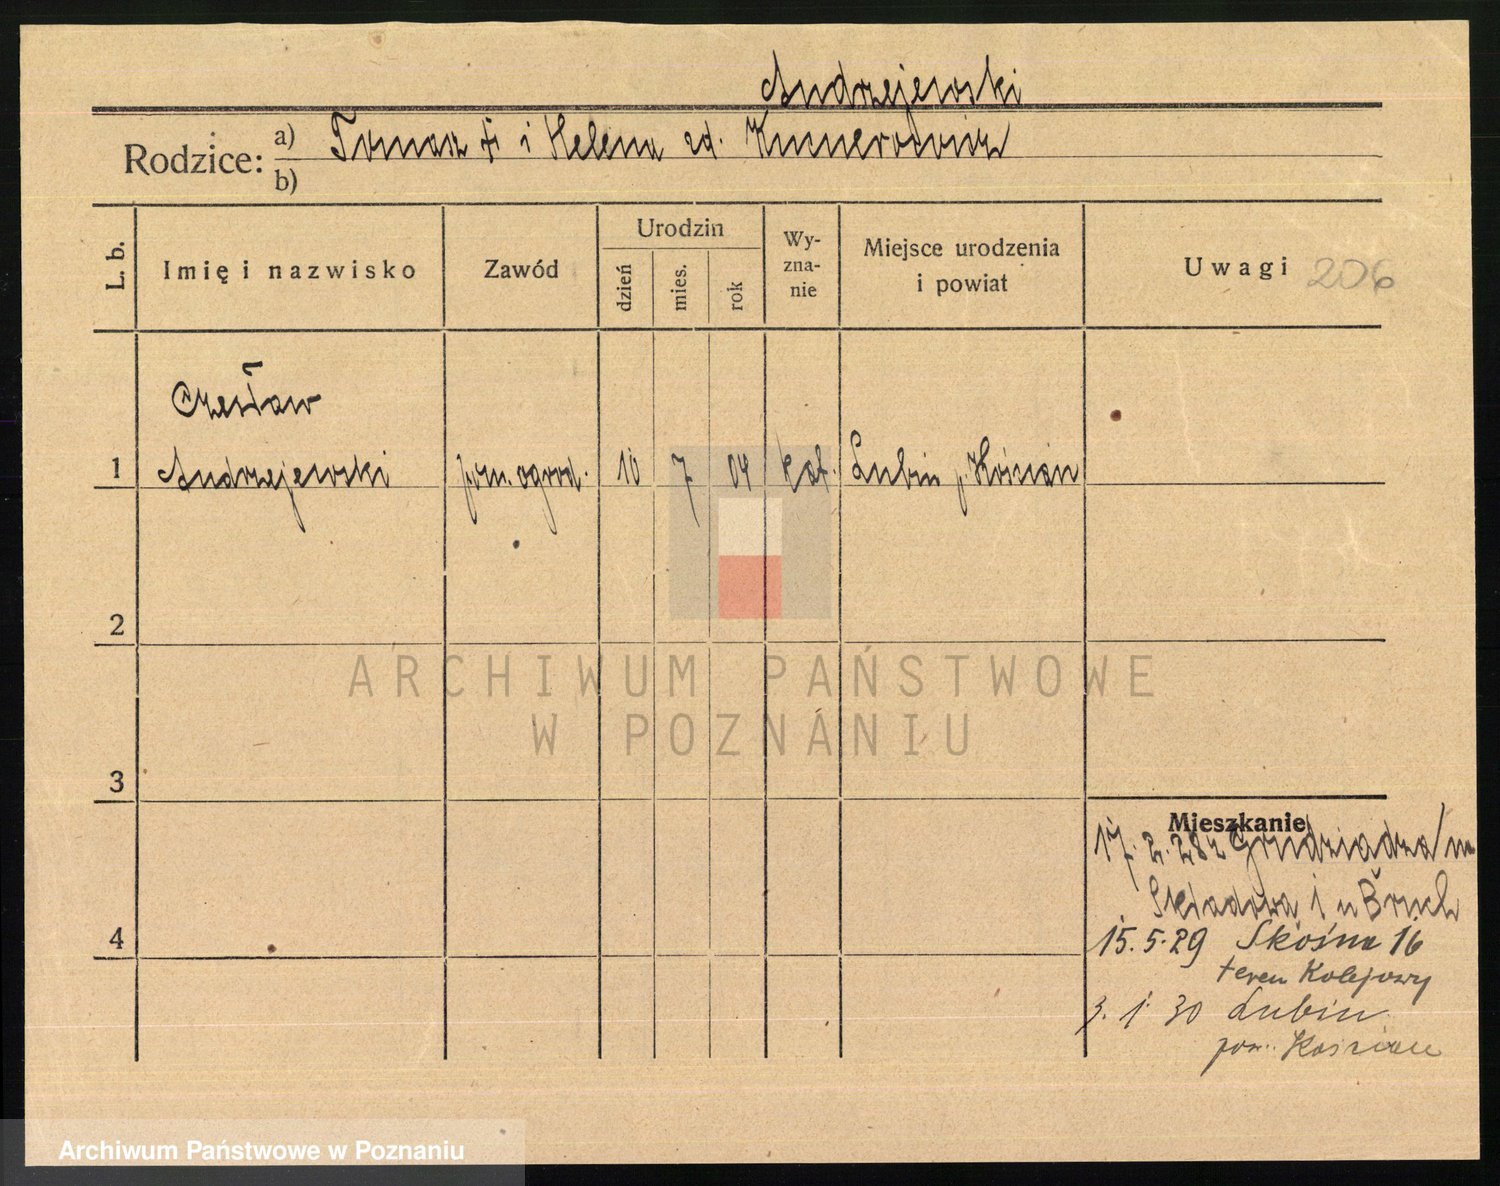 Andrzejewski
Rodzice: a) Tomasz † i Helena zd.
b)
L. b.
Imię i nazwisko
Zawód
Urodzin
dzień
mies.
rok
Wy-
zna-
nie
Miejsce urodzenia
i powiat
Uwagi 206
Czesław
1 Andrzejewski pom. ogrod. 10 7 04 kat. Lubiń p. Kościan
2
3
4
Mieszkanie
17. 2. 28 z Grudziądza/
Składowa 1 u
15. 5. 29 Skośna 16
teren Kolejowy
3. 1. 30 Lubiń
pow. Kościan
ARCHIWUM PAŃSTWOWE
W POZNANIU
Archiwum Państwowe w Poznaniu